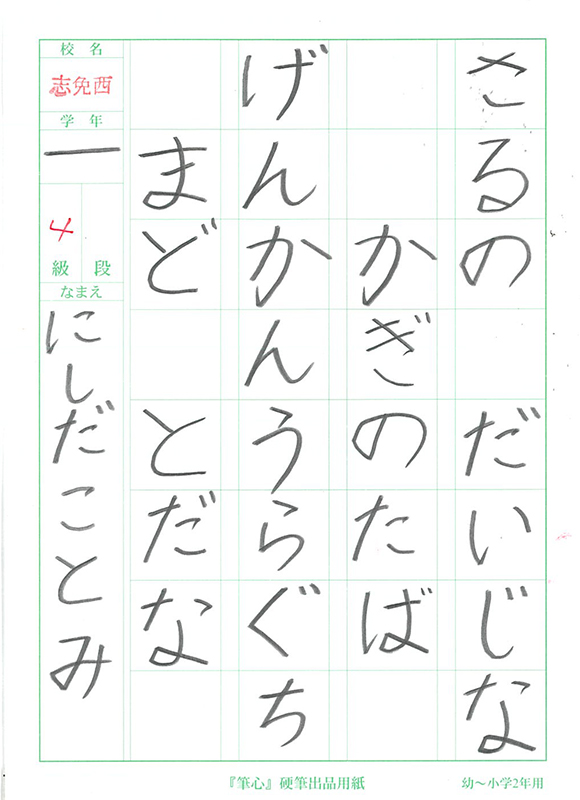 さるの　だいじな
かぎのたば
げんかんうらぐち
まど　とだな
校名
志免西
学年
一
4
級段
なまえ
にしだことみ
『筆心』硬筆出品用紙
幼〜小学2年用